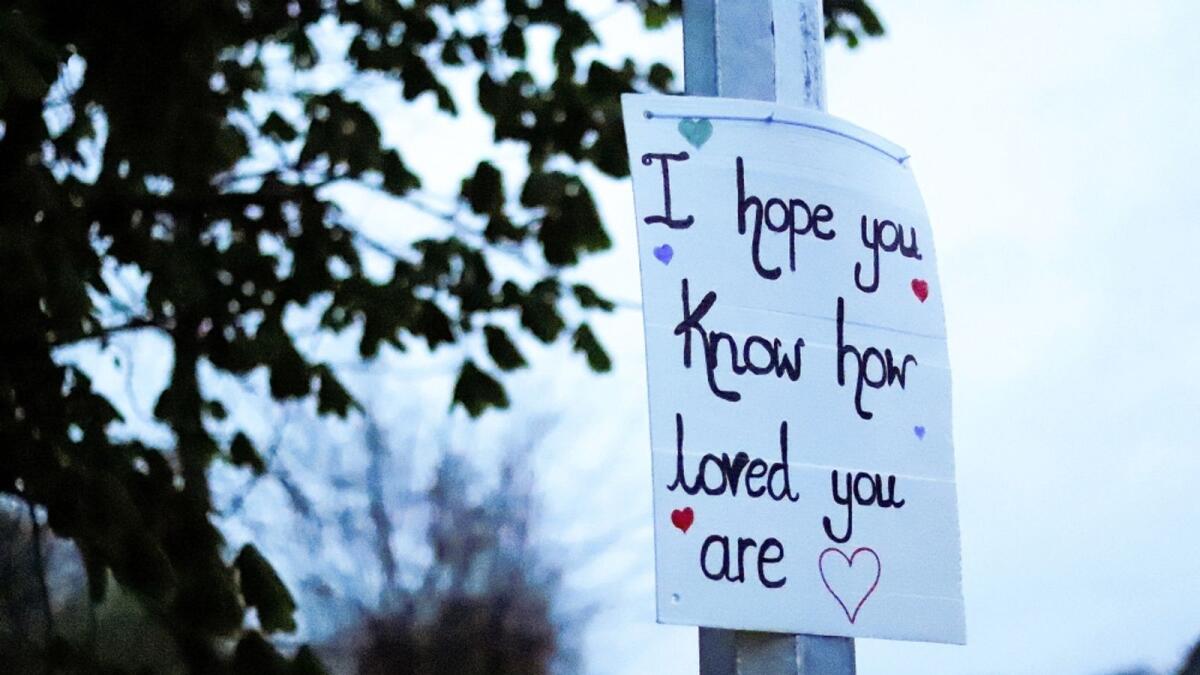 I hope you
Know how
loved you
are